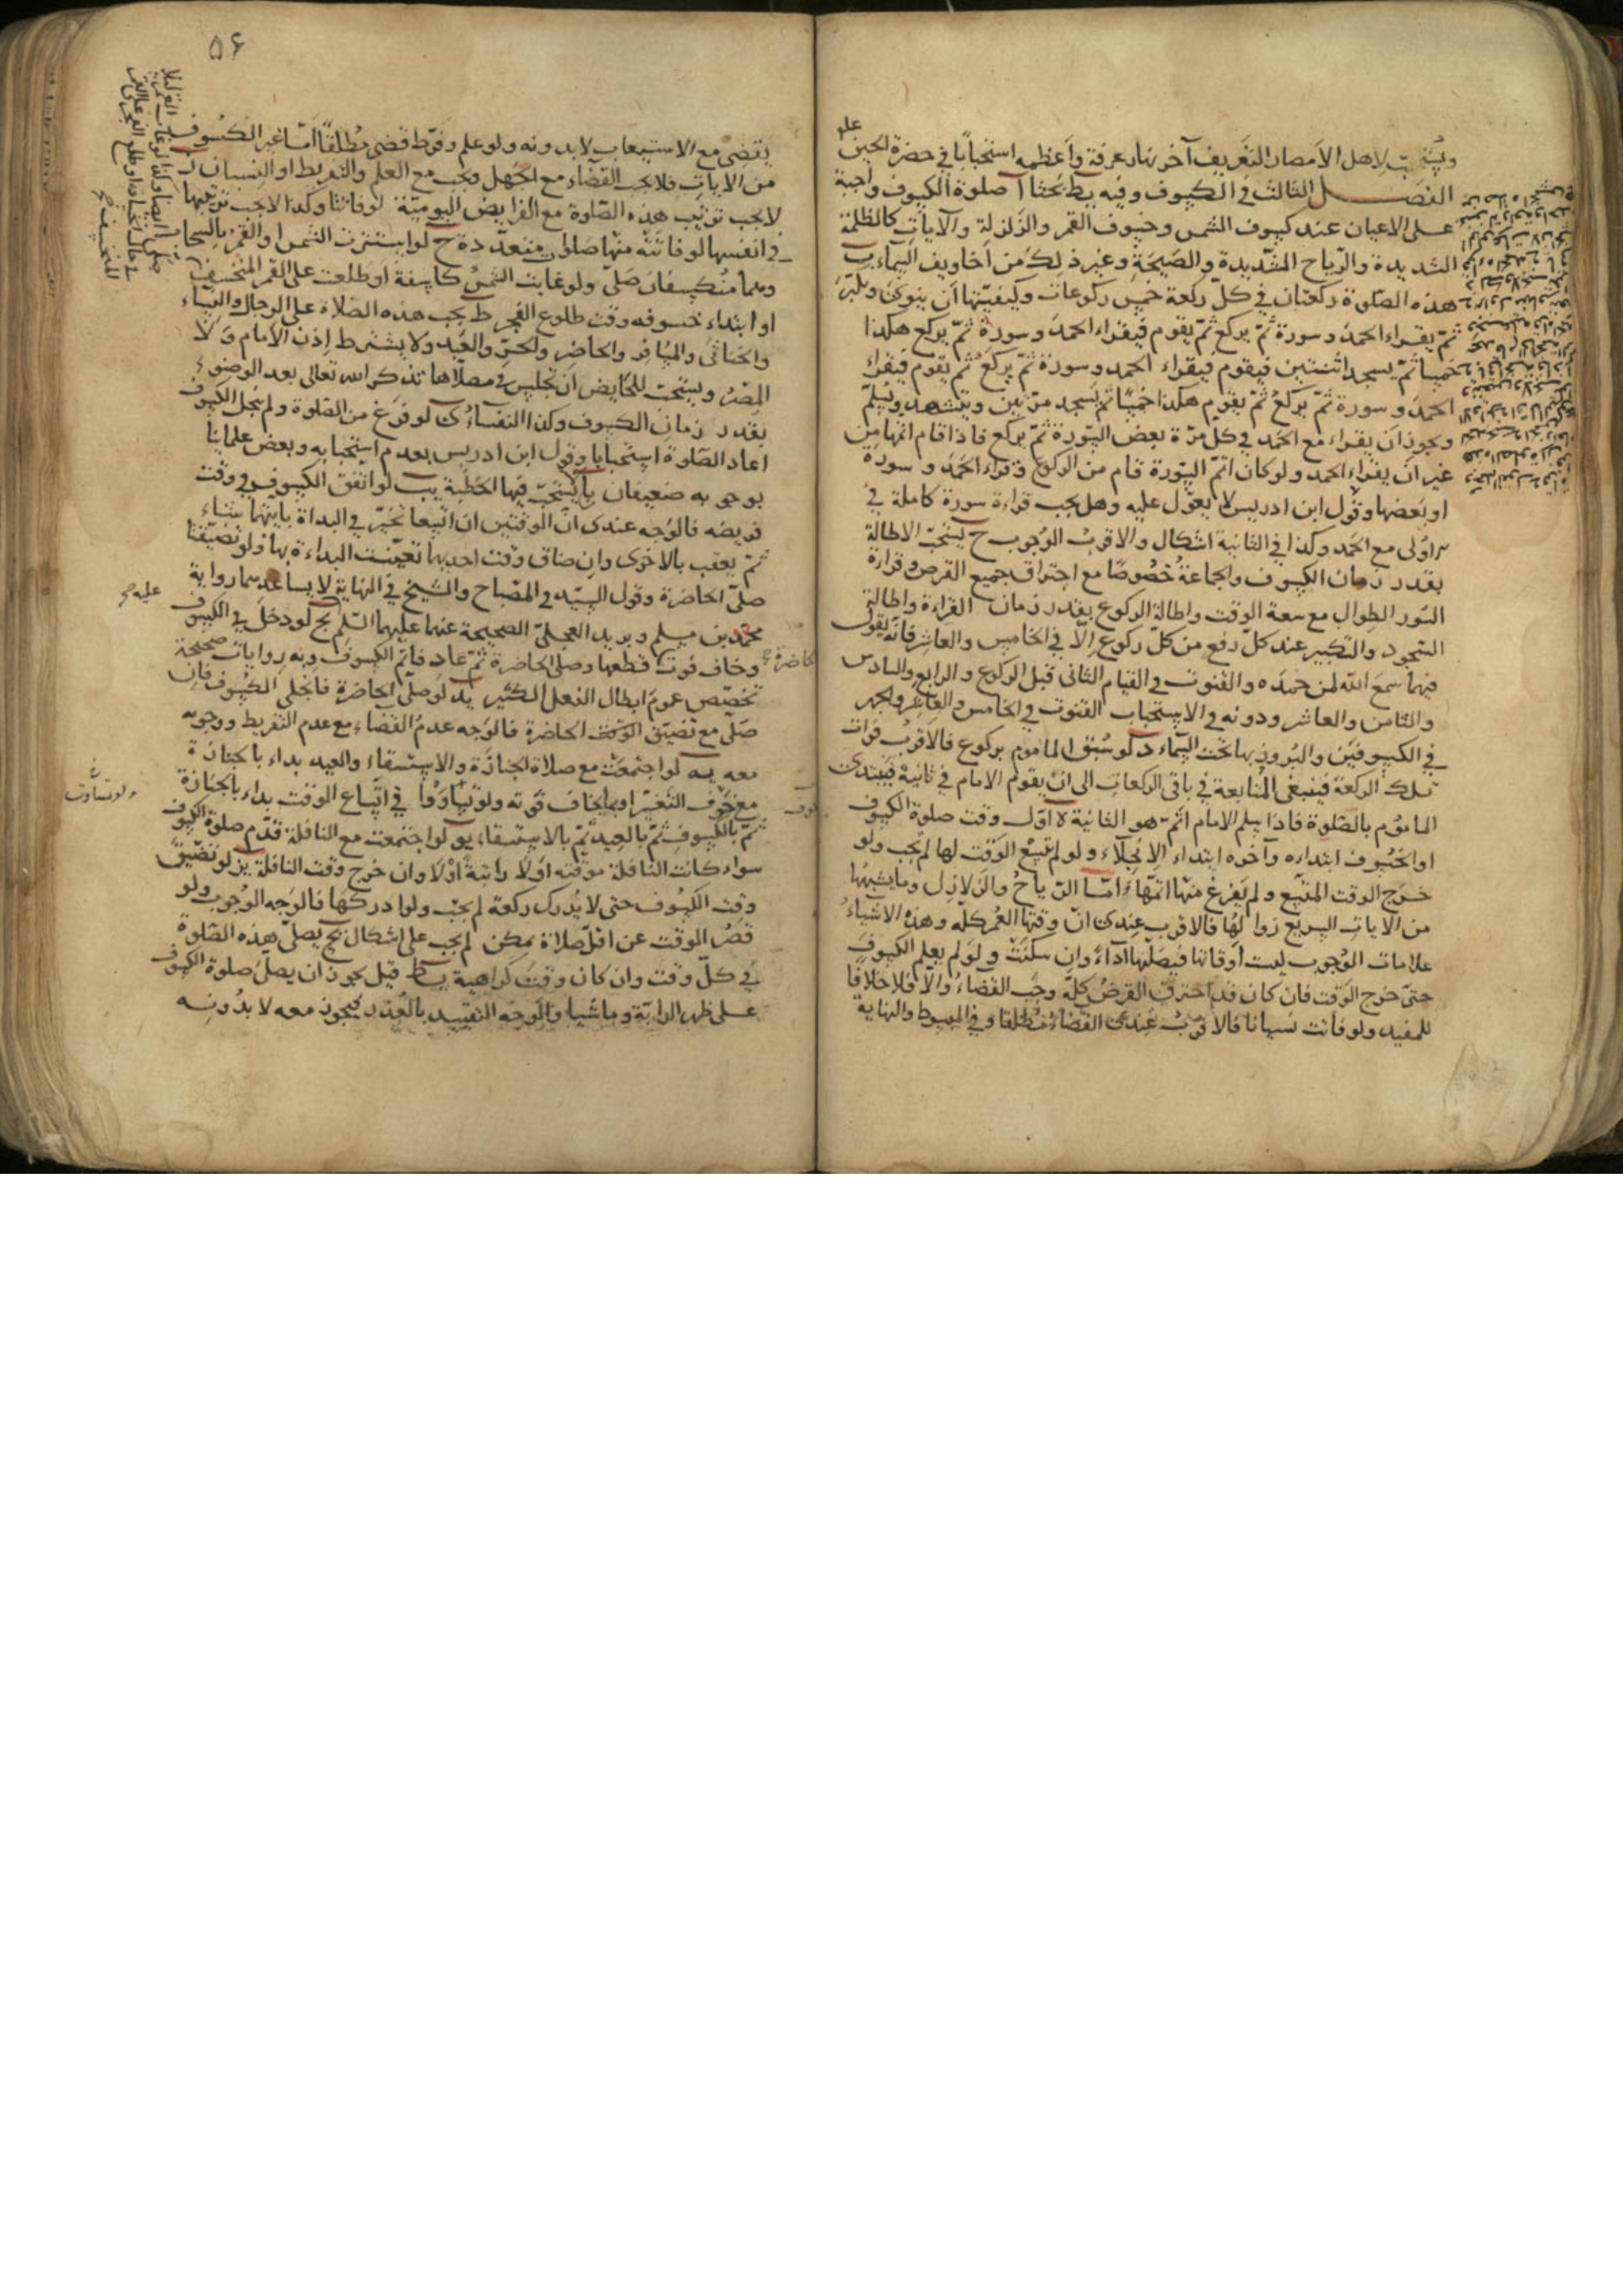 ويستحب لاهل الامصار التعريف آخر نهار عرفة وأعظمه استحبابا في حضرة الحسين
عليه
الفصل الثالث في الكسوف وفيه يط بحثا آ صلوة الكسوف واجبة
على الاعيان عند كسوف الشمس وخسوف القمر والزلزلة والآيات كالظلمة
الشديدة والرّياح الشّديدة والصّيحة وغير ذلك من أخاويف السّماء ب
هذه الصّلوة ركعتان في كلّ ركعة خمس ركوعات وكيفيّتها أن ينوى ويكبّر
ثمّ يقراء الحمد وسورة ثمّ يركع ثمّ يقوم فيقراء الحمد وسورة ثمّ يركع هكذا
خمسا ثمّ يسجد اثنتين فيقوم فيقراء الحمد وسورة ثمّ يركع ثمّ يقوم فيقراء
الحمد وسورة ثمّ يركع ثمّ يقوم هكذا خمسًا ثمّ يسجد مرّتين ويتشهد ويسلّم
ويجوز أن يقراء مع الحمد في كل مرّة بعض السّورة ثمّ يركع فاذا قام اتمّها من
غير ان يقراء الحمد ولو كان اتمّ السّورة قام من الركوع وقراء الحمد وسورة
او بعضها وقول ابن ادريس لا يعوّل عليه وهل يجب قراءة سورة كاملة في
اولى مع الحمد وكذا في الثانية اشكال والاقرب الوجوب ح يستحبّ الاطالة
بقدر زمان الكسوف والجماعة خصوصًا مع احتراق جميع القرص وقراءة
السّور الطوال مع سعة الوقت واطالة الركوع بقدر زمان القراءة واطالة
السّجود والتكبير عند كلّ رفع من كلّ ركوع إلّا في الخامس والعاشر فانّه يقول
فيهما سمع الله لمن حمده والقنوت في القيام الثانى قبل الركوع والرابع والسادس
والثامن والعاشر ودونه في الاستحباب القنوت في الخامس والعاشر والجهر
في الكسوفين والبروز بها تحت السّماء د لو سبق الماموم بركوع فالاقرب فوات
تلك الركعة فينبغي المتابعة في باقى الركعات الى ان يقوم الامام في ثانية فيبتدى
الماموم بالصّلوة فاذا سلم الامام اتمّ هو الثانية ه اوّل وقت صلوة الكسوف
او الخسوف ابتداءه وآخره ابتداء الانجلاء ولو لم يتّسع الوقت لها لم تجب ولو
خرج الوقت المتّسع ولم يفرغ منها اتمّها و امّا الرّياح والزلازل وما يشبهها
من الآيات السريع زوالها فالاقرب عندى انّ وقتها العمر كلّه وهذه الاشياء
علامات الوجوب ليست أوقاتا فيصلّيها أداءً وان سكنت و لو لم يعلم الكسوف
حتى خرج الوقت فان كان قد احترق القرص كلّه وجب القضاء والّا فلا خلافًا
للمفيد ولو فاتت نسيانا فالاقرب عندى القضاء مطلقا وفي المبسوط والنهاية
۵۶
يقضى مع الاستيعاب لا بدونه ولو علم وفرّط قضى مطلقًا أمّا غير الكسوف
من الآيات فلا يجب القضاء مع الجهل ويجب مع العلم والتفريط او النّسيان ز
لا يجب ترتيب هذه الصّلوة مع الفرايض اليوميّة لو فاتتا وكذا لا يجب ترتيبها
في انفسها لو فاتته منها صلوات متعدّدة ح لو استترت الشمس او القمر بالسحاب
وهما منكسفان صلّى ولو غابت الشمس كاسفة او طلعت على القمر المنخسف
او ابتداء خسوفه وقت طلوع الفجر ط يجب هذه الصّلاة على الرجال والنّساء
والخناثى والمسافر والحاضر والحرّ والعبد ولا يشترط إذن الامام ولا
المصر ويستحب للحايض أن تجلس في مصلّاها تذكر الله تعالى بعد الوضوء
بقدر زمان الكسوف وكذا النفساء ى لو فرغ من الصّلوة ولم ينجل الكسوف
اعاد الصّلوة استحبابا وقول ابن ادريس بعدم استحبابه وبعض علمائنا
بوجوبه ضعيفان يا يستحبّ فيها الخطبة يب لو اتفق الكسوف في وقت
فريضه فالوجه عندى انّ الوقتين ان اتّسعا تخيّر في البداة بايّتهما شاء
ثمّ يعقب بالاخرى وإن ضاق وقت احديهما تعيّنت البداءة بها ولو تضيّقتا
صلّى الحاضرة وقول السيّد في المصباح والشيخ في النهاية لا يساعد رواية
محمّد بن مسلم وبريد العجلىّ الصحيحة عنهما عليهما السّلم يج لو دخل في الكسوف
وخاف فوت قطعها وصلى الحاضرة ثمّ عاد فاتمّ الكسوف وبه روايات صحيحة
تخصّص عموم ابطال الفعل الكثير يد لو صلّى الحاضرة فانجلى الكسوف فان
صلّى مع تضيّق الوقت الحاضرة فالوجه عدم القضاء مع عدم التفريط ووجوبه
معه يه لو اجتمعت مع صلاة الجنازة والاستسقاء والعيد بداء بالجنازة
مع خوف التغيّر او بما يخاف فوته ولو تساوقا في اتّساع الوقت بداء بالجنازة
ثمّ بالكسوف ثمّ بالعيد ثمّ بالاستسقاء يو لو اجتمعت مع النافلة قدّم صلوة الكسوف
سواء كانت النافلة موقّته أولا راتبة أولا وان خرج وقت النافلة يز لو تضيّق
وقت الكسوف حتى لا يدرك ركعة لم يجب ولو ادركها فالوجه الوجوب ولو
قصر الوقت عن اقلّ صلاة يمكن لم يجب على اشكال يح يصلّى هذه الصّلوة
في كلّ وقت وان كان وقت كراهية يط قيل يجوز ان يصلّى صلوة الكسوف
على ظهر الدابّة وماشيا والوجه التقييد بالعذر فيجوز معه لا بدونه
الحاضرة
ولو تساوت